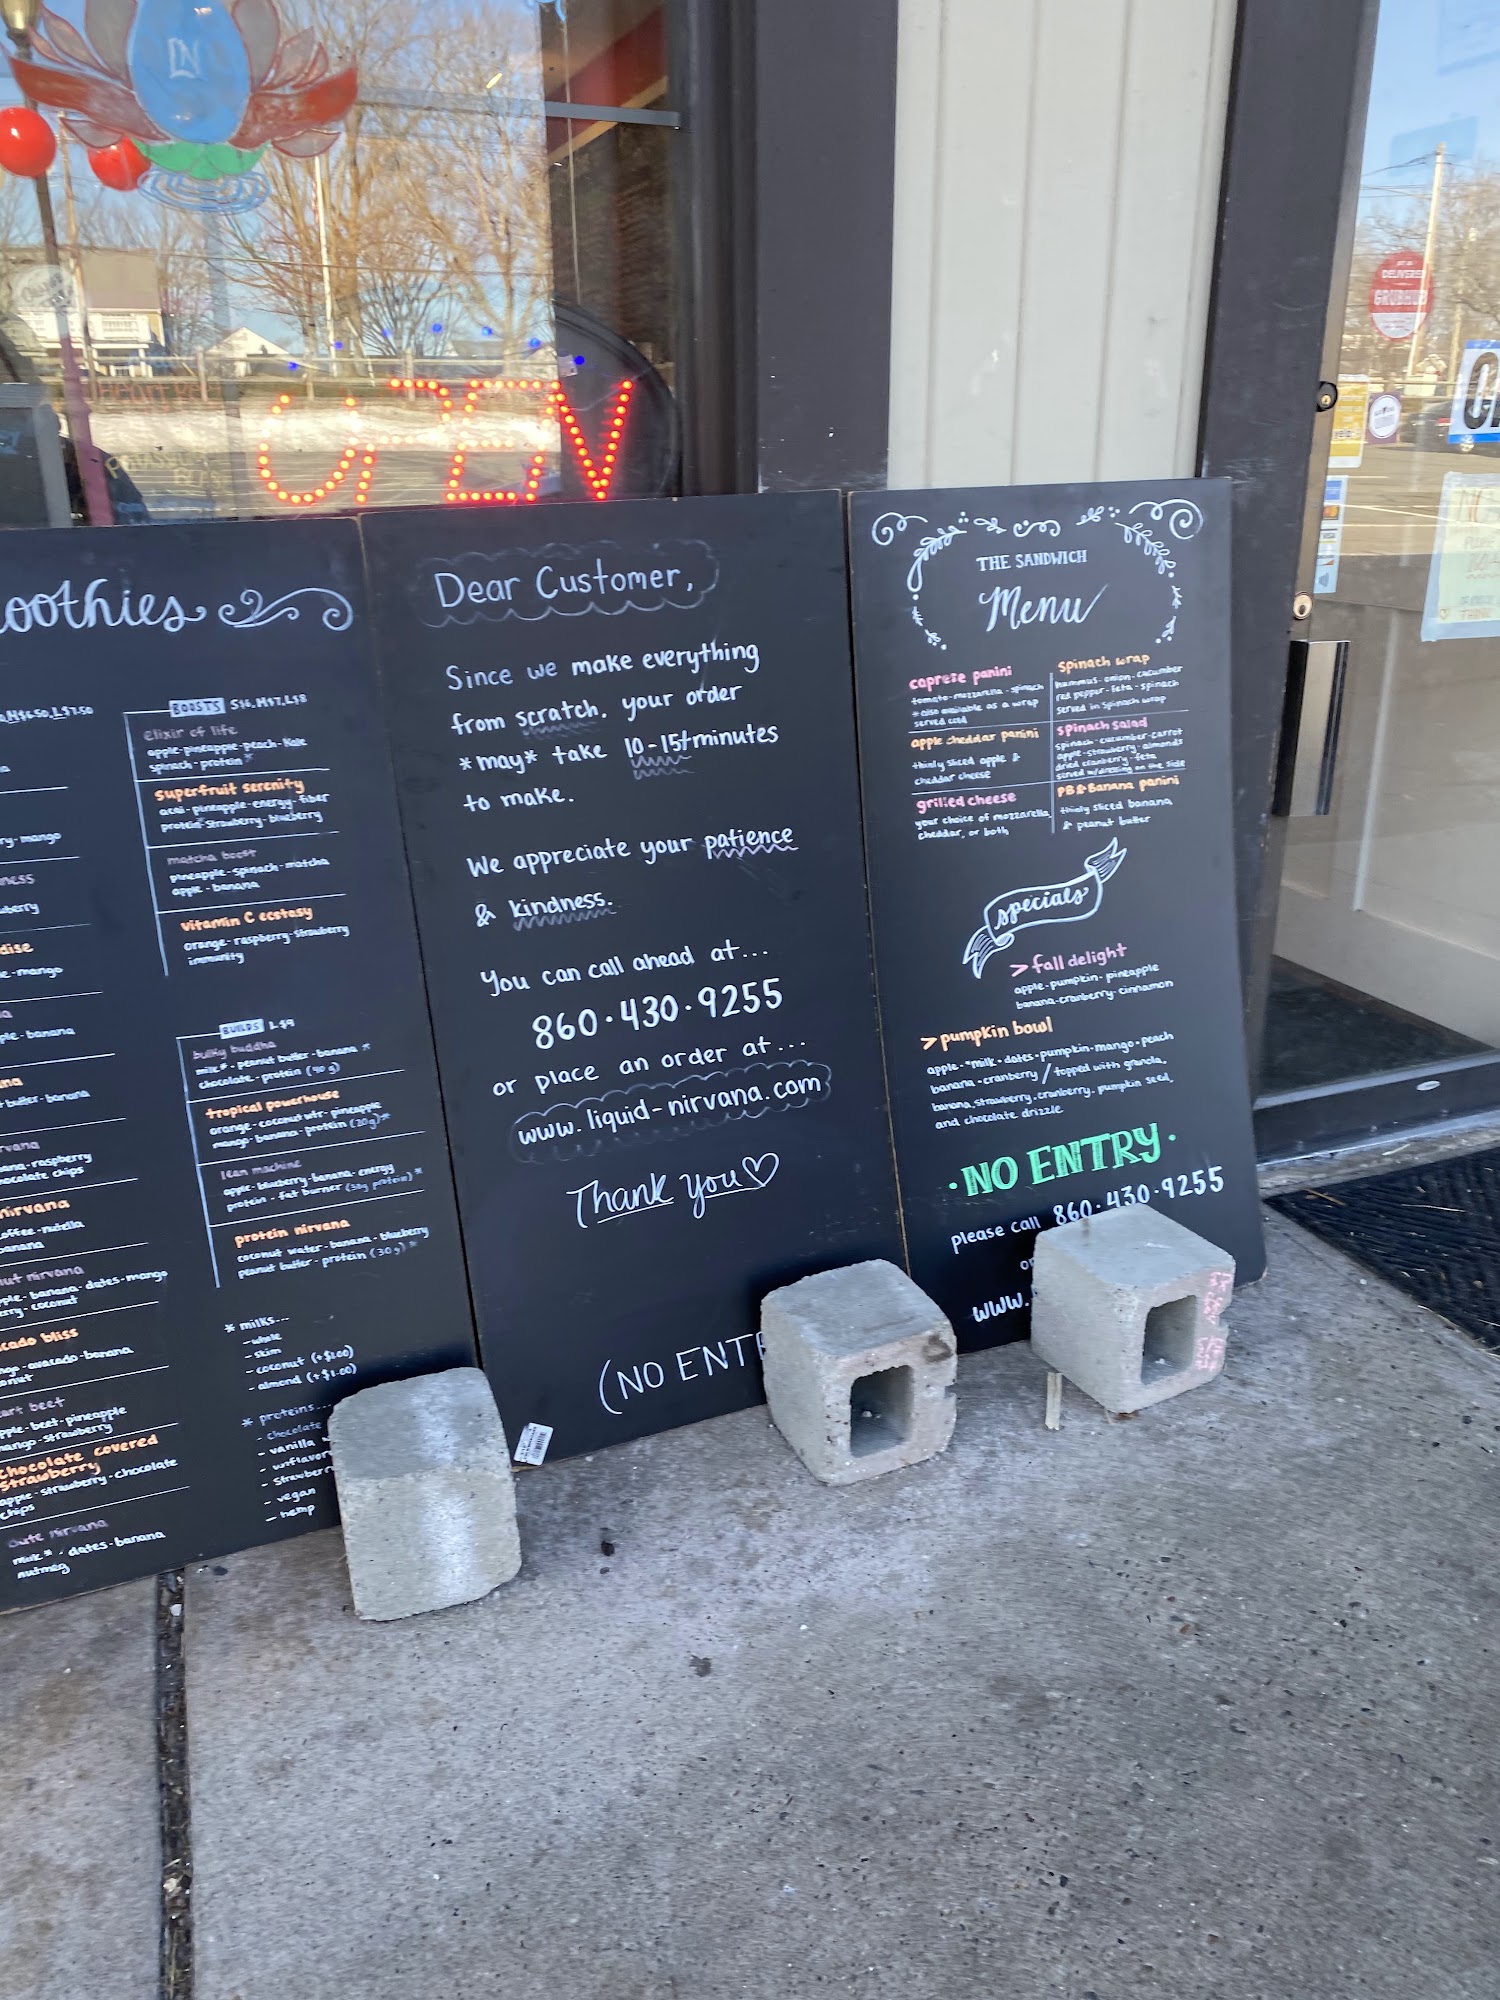 LN
OPEN
DELIVERED
GRUBHUB
oothies
M $6.50, L $7.50
BOOSTS S $6, M $7, L $8
elixir of life
apple-pineapple-peach-kale
spinach-protein*
superfruit serenity
acai-pineapple-energy-fiber
protein*-strawberry-blueberry
matcha boost
pineapple-spinach-matcha
apple-banana
vitamin C ecstasy
orange-raspberry-strawberry
immunity
BUILDS L $9
bulky buddha
milk*-peanut butter-banana
chocolate-protein (40g)
tropical powerhouse
orange-coconut wtr-pineapple
mango-banana-protein (20g)*
lean machine
apple-blueberry-banana-energy
protein-fat burner (30g protein)*
protein nirvana
coconut water-banana-blueberry
peanut butter-protein (30g)*
* milks...
- whole
- skim
- coconut (+$1.00)
- almond (+$1.00)
* proteins...
- chocolate
- vanilla
- unflavor
- strawberr
- vegan
- hemp
ry-mango
ness
berry
dise
e-mango
ple-banana
ana
t butter-banana
rvana
ana-raspberry
ocolate chips
nirvana
offee-nutella
anana
nut nirvana
ple-banana-dates-mango
erry-coconut
cado bliss
ngo-avocado-banana
onut
art beet
pple-beet-pineapple
mango-strawberry
chocolate covered
strawberry
apple-strawberry-chocolate
chips
nirvana
milk*-dates-banana
nutmeg
Dear Customer,
Since we make everything
from scratch, your order
*may* take 10-15+ minutes
to make.
We appreciate your patience
& kindness.
You can call ahead at...
860·430·9255
or place an order at...
www.liquid-nirvana.com
Thank you♡
(NO ENT
THE SANDWICH
Menu
caprese panini
tomato-mozzarella-spinach
*also available as a wrap
served cold
spinach wrap
hummus-onion-cucumber
red pepper-feta-spinach
served in spinach wrap
apple cheddar panini
thinly sliced apple &
cheddar cheese
spinach salad
spinach-cucumber-carrot
apple-strawberry-almonds
dried cranberry-feta
served w/dressing on the side
grilled cheese
your choice of mozzarella,
cheddar, or both
PB & Banana panini
thinly sliced banana
& peanut butter
specials
> fall delight
apple-pumpkin-pineapple
banana-cranberry-cinnamon
> pumpkin bowl
apple-*milk-dates-pumpkin-mango-peach
banana-cranberry / topped with granola,
banana, strawberry, cranberry, pumpkin seed,
and chocolate drizzle
·NO ENTRY·
please call 860·430·9255
or
www.